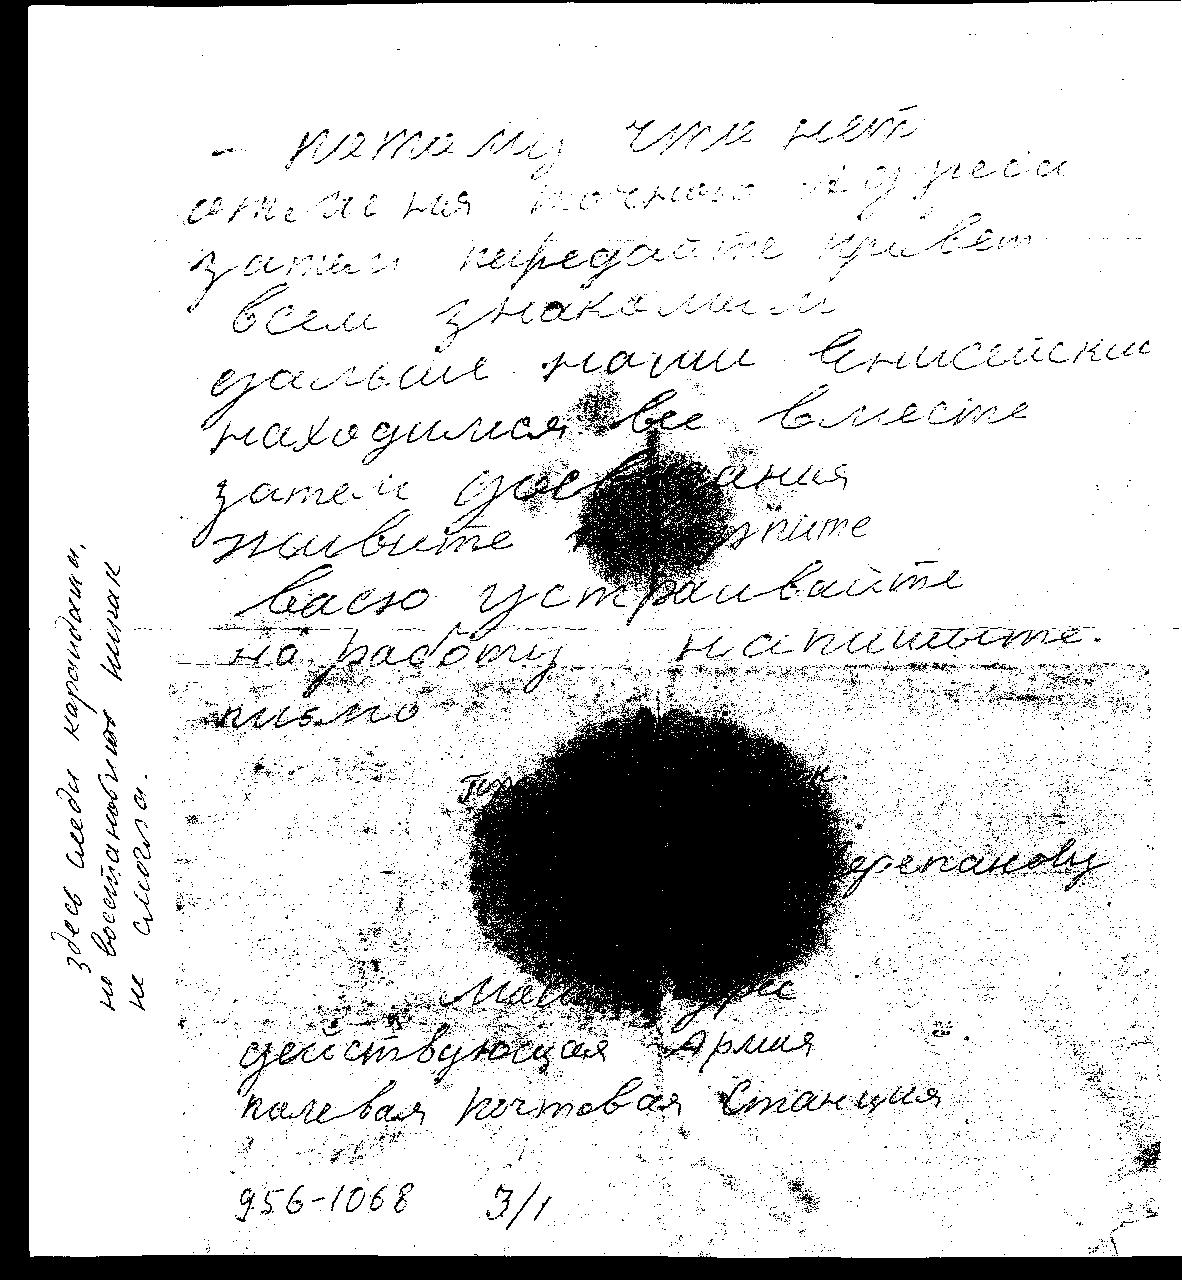 – потому что нет
точного адреса
затем передайте привет
всем знакомым
дальше наши Енисейски
находимся все вместе
затем досвидания
живите
васю устраивайте
на работу напишите.
письмо
действующая Армия
полевая почтовая Станция
956-1068 3/1
здесь следы карандаша,
но восстановить никак
не смогла.